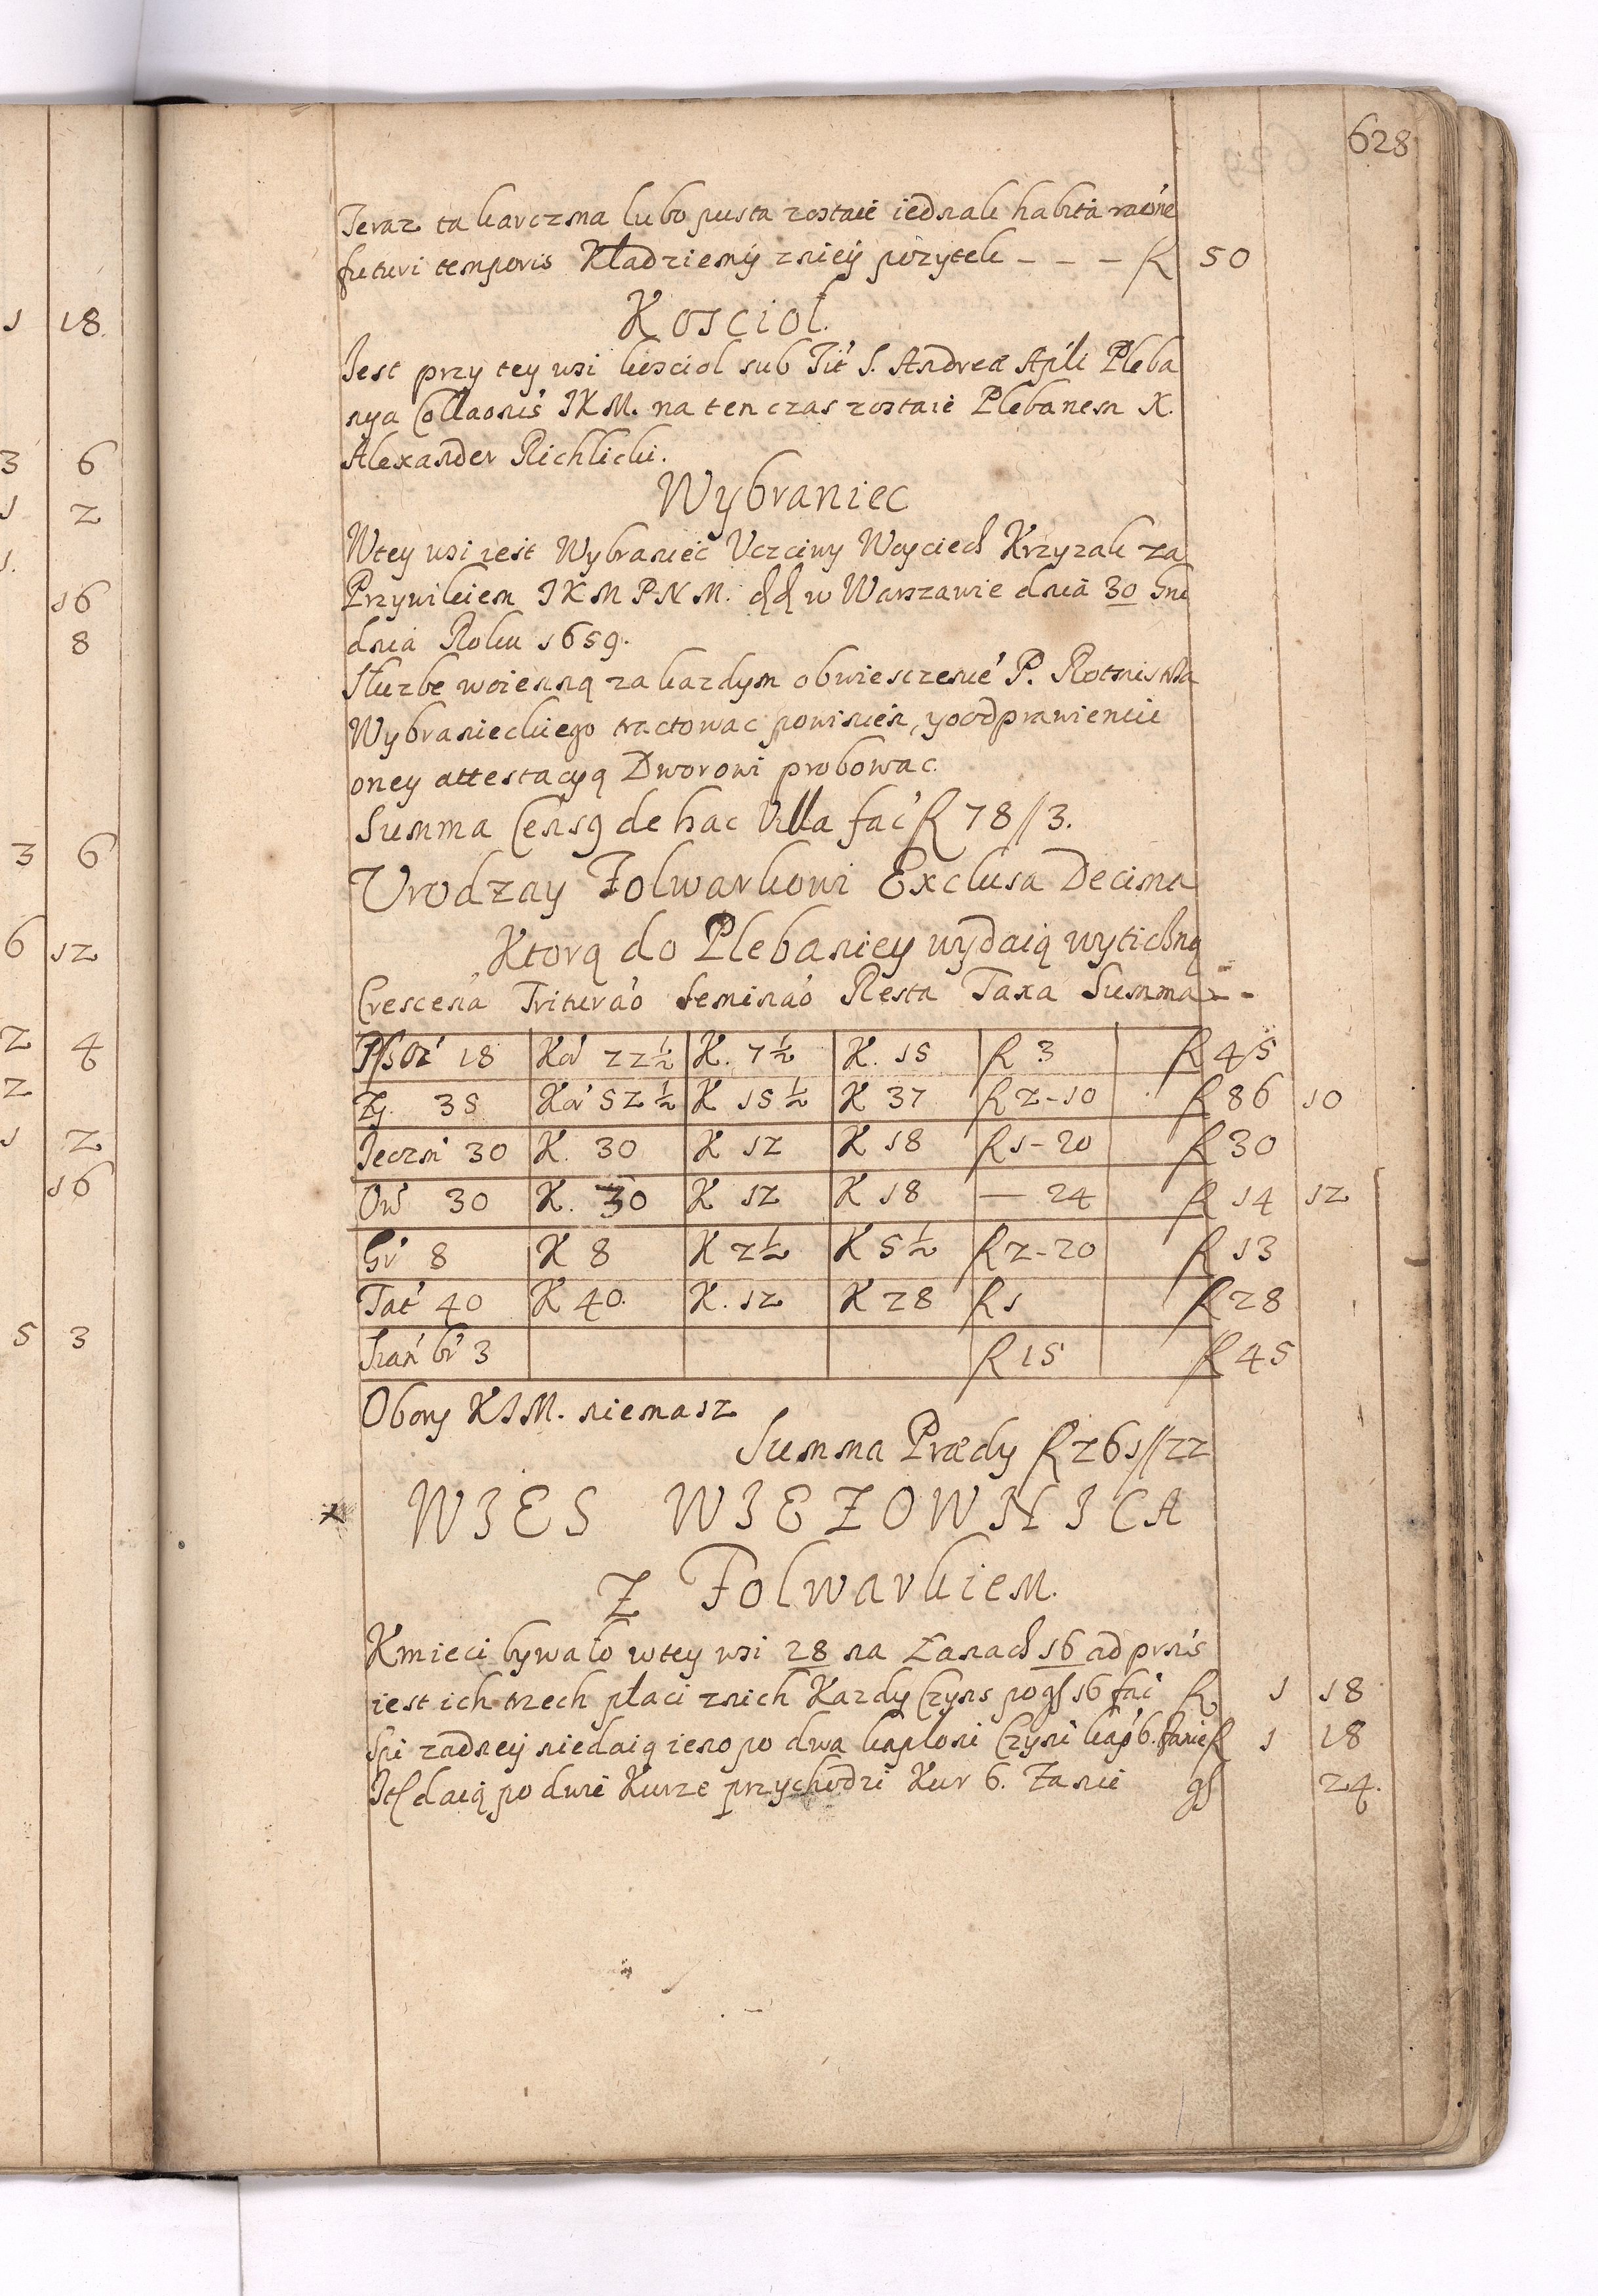 628
Teraz ta karczma lubo pusta zostaie iednak habita raońe
futuri temporis Kładziemy zniey pozytek - - - fl 50
Kosciol.
Jest przy tey wsi kosciol sub Tit' S. Andreæ Apli Pleba
nya Collaonis JKM. na ten czas zostaie Plebanem X.
Alexander Richlicki.
Wybraniec
Wtey wsi iest Wybraniec Uczciwy Woyciech Krzyzak za
Przywileiem JKMPNM. dd w Warszawie dnia 30
dnia Roku 1659.
Słuzbe woienną za kazdym obwiesczenie' P. Rotmistrza
Wybranieckiego tractowac powinien, y o odprawieniu
oney attestacyą Dworowi probowac.
Summa Censq de hac Villa fac' fl 78//3.
Urodzay Folwarkowi Exclusa Decima
Ktorą do Plebaniey wydaią wytichną
Crescena Triturao Seminao Resta Taxa Summa - -
Psz Oz' 18 Kor' 22½ K. 7½ K. 15 fl 3 fl 45
Zy. 35 Kor' 52½ K 15½ K 37 fl 2-10 fl 86 10
Jeczm' 30 K. 30 K 12 K 18 fl 1-20 fl 30
Ow' 30 K. 30 K 12 K 18 — 24 fl 14 12
Gr' 8 K 8 K 2½ K 5½ fl 2-20 fl 13
Tat' 40 K 40. K. 12 K 28 fl 1 fl 28
Sian' br' 3 fl 15 fl 45
Obory KJM. niemasz
Summa Prædy fl 261//22
WIES WIEZOWNICA
Z Folwarkiem.
Kmieci bywało wtey wsi 28 na Łanach 16 ad prns
iest ich trzech płaci znich Kazdy Czyns po gs 16 fac' fl 1 18
Spi zadney niedaią ieno po dwa kapłoni Czyni kap' 6. fl 1 18
It daią po dwie Kurze przychodzi Kur 6. Za nie gs 24.
1 18
3 6
1 2
1.
16
8
3 6
6 12
2 4
2
1 2
16
5 3